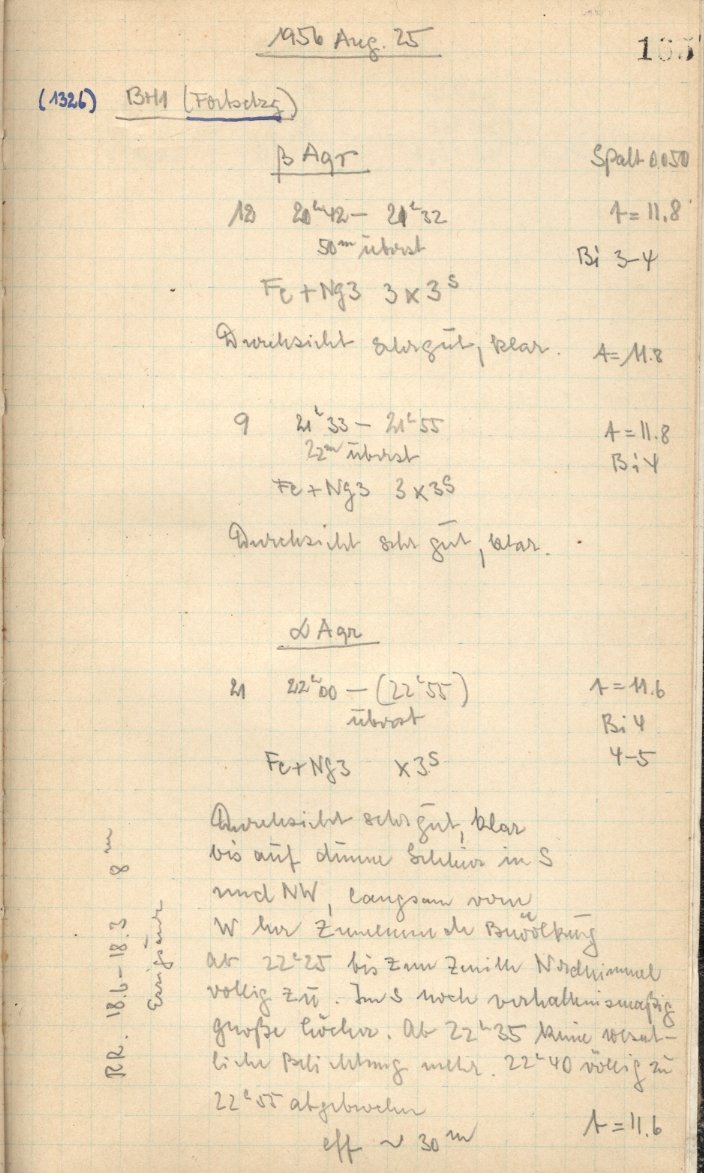 1956 Aug. 25
165
(1326) BH1 (Fortsetzg)
β Aqr Spalt 0.050
12 20ʰ42 – 21ʰ32 A = 11.8
50ᵐ überst Bi 3–4
Fe + Ng3 3 x 3ˢ
Durchsicht sehr gut, klar. A = 11.8
9 21ʰ33 – 21ʰ55 A = 11.8
22ᵐ überst Bi 4
Fe + Ng3 3 x 3ˢ
Durchsicht sehr gut, klar.
α Aqr
21 22ʰ00 – (22ʰ55) A = 11.6
überst Bi 4
Fe + Ng3 x 3ˢ 4–5
Durchsicht sehr gut, klar
bis auf dünne Schleier in S
und NW, langsam vom
W her zunehmende Bewölkung
ab 22ʰ25 bis zum Zenith Nordhimmel
völlig zu. Im S noch verhältnismäßig
große Löcher. Ab 22ʰ35 keine wesent-
liche Belichtung mehr. 22ʰ40 völlig zu
22ʰ55 abgebrochen
eff ~ 30ᵐ A = 11.6
RR. 18.6 – 18.3 8ᵐ
Essigsäure